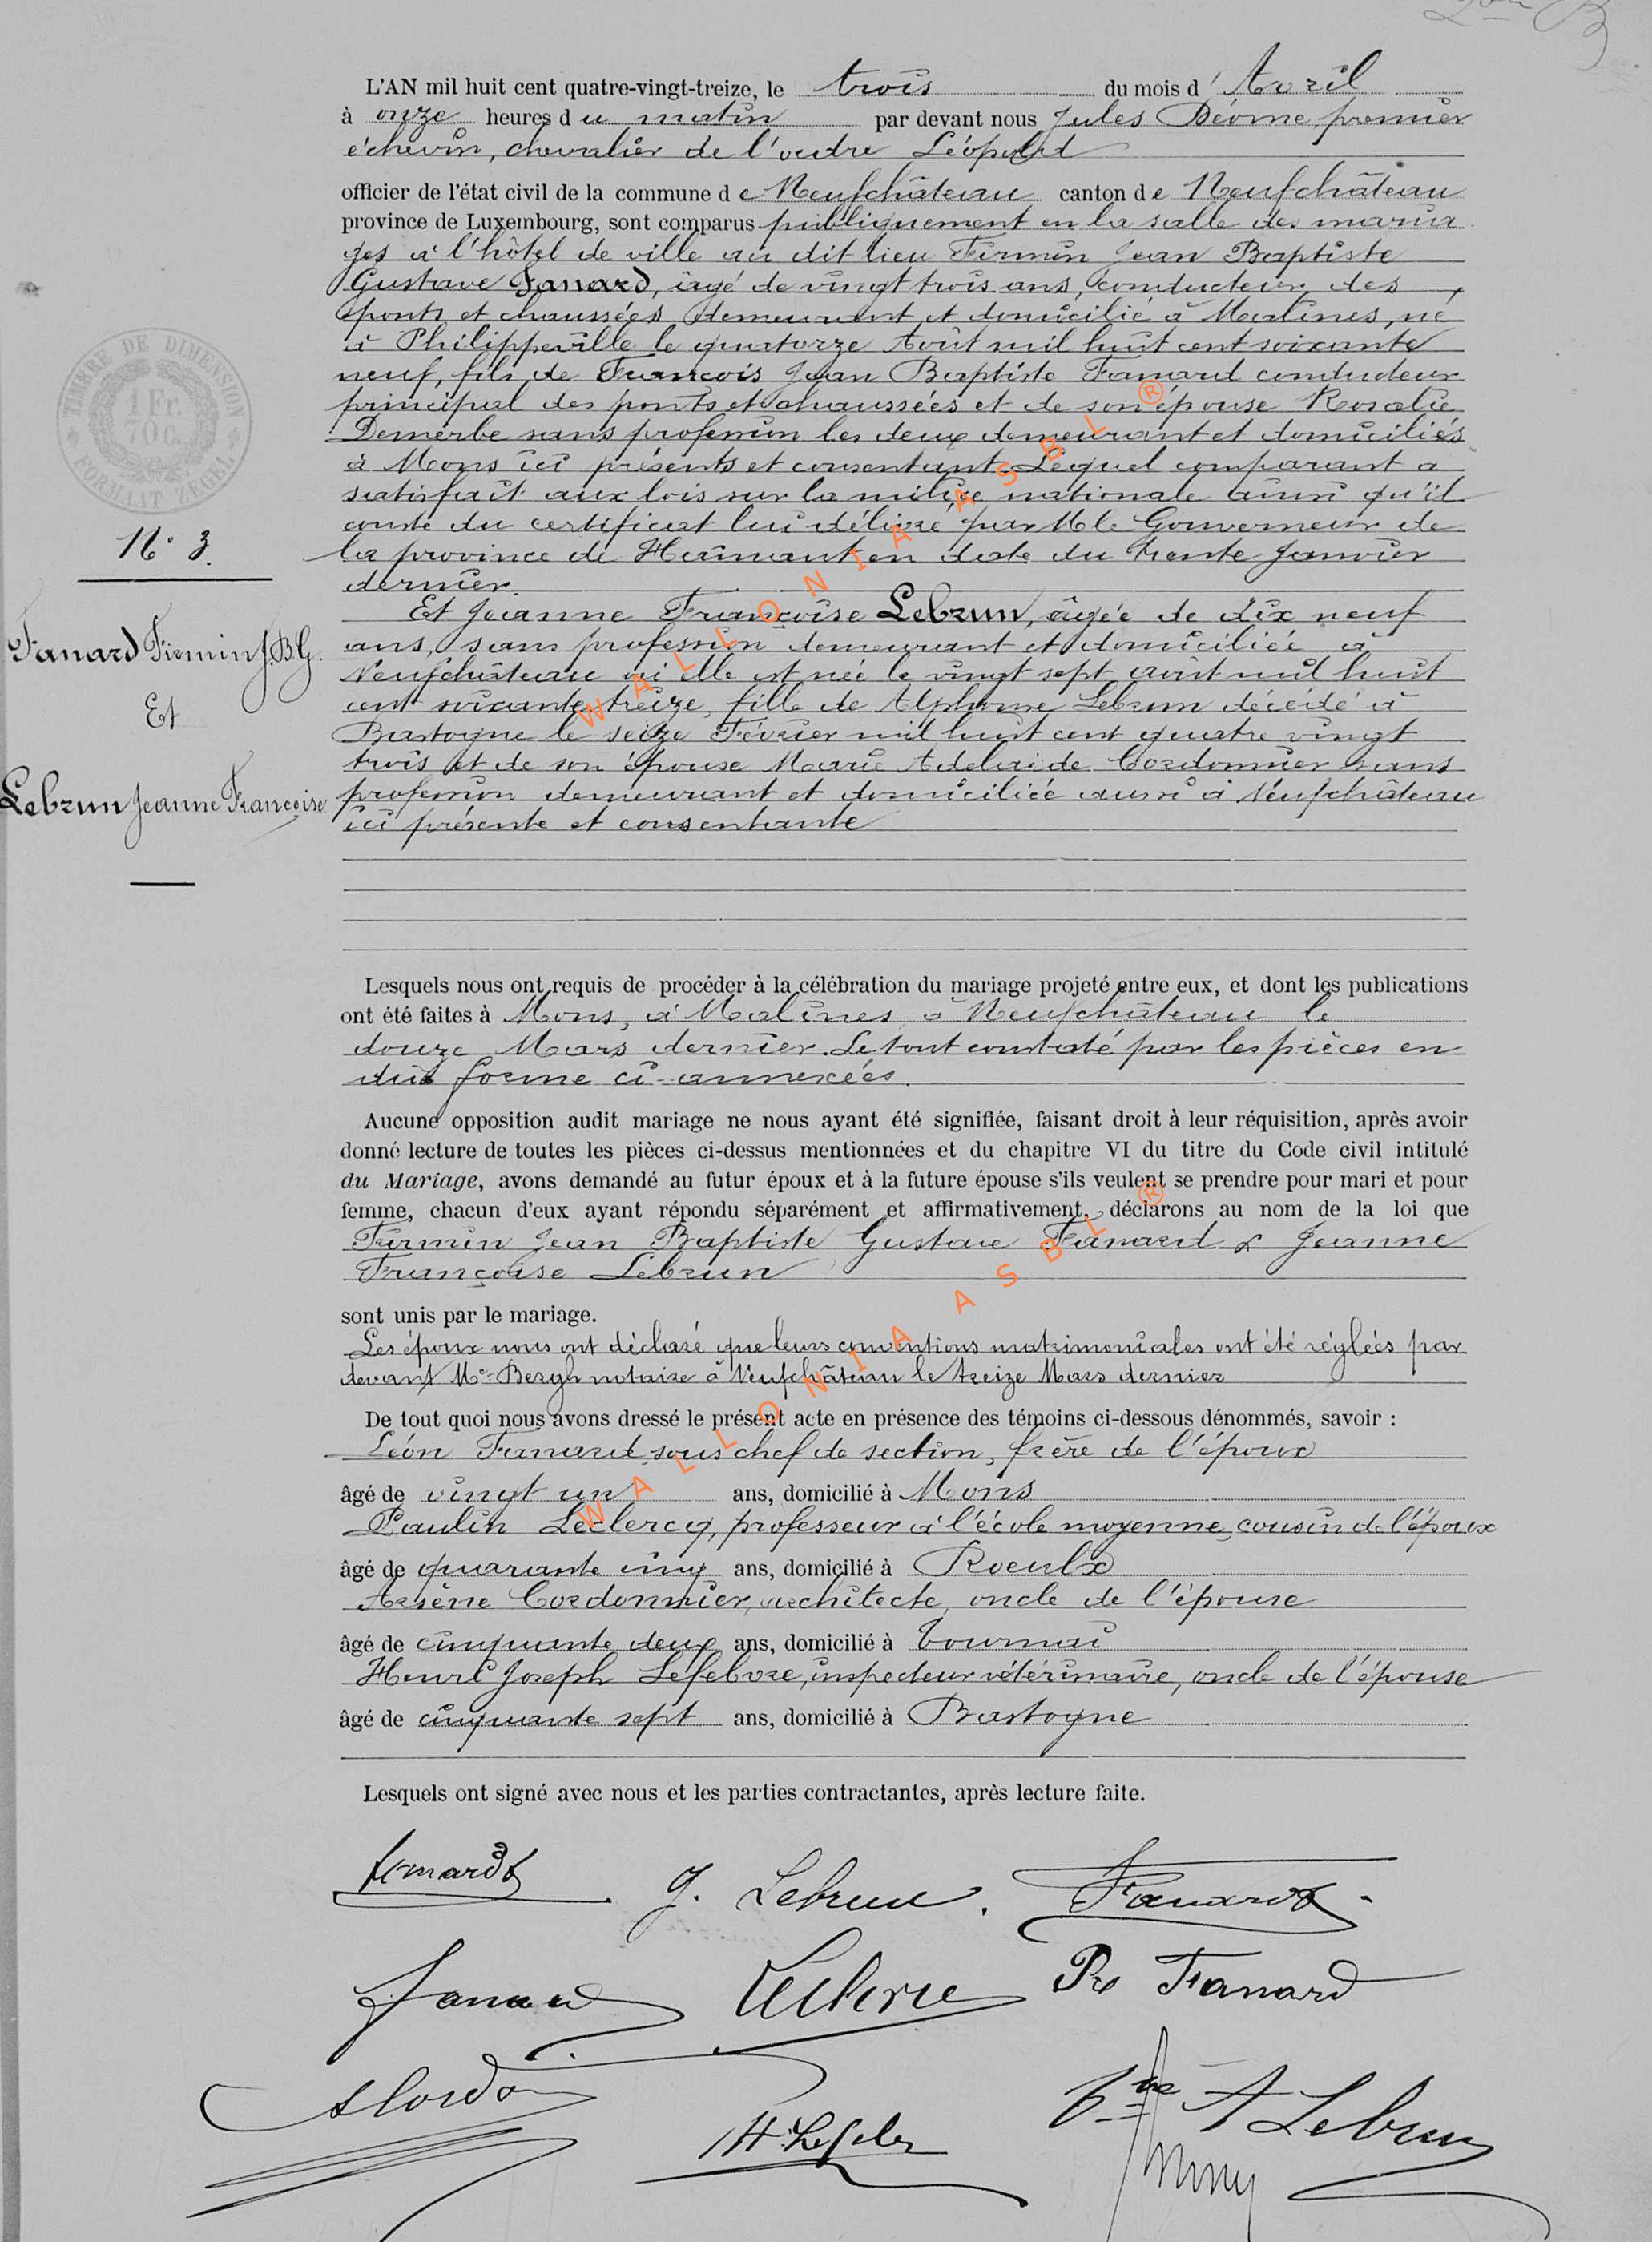 L'AN mil huit cent quatre-vingt-treize, le trois du mois d' Avril
à onze heures du matin par devant nous Jules Déome, premier
échevin, chevalier de l'ordre Léopold
officier de l'état civil de la commune de Neufchâteau canton de Neufchâteau
province de Luxembourg, sont comparus publiquement en la salle des maria
ges à l'hôtel de ville au dit lieu Firmin Jean Baptiste
Gustave Fanard, âgé de vingt trois ans, conducteur des
ponts et chaussées demeurant et domicilié à Malines, né
à Philippeville le quatorze Août mil huit cent soixante
neuf, fils de François Jean Baptiste Fanard conducteur
principal des ponts et chaussées et de son épouse Rosalie
Demerbe sans profession les deux demeurant et domiciliés
à Mons ici présents et consentant. Lequel comparant a
satisfait aux lois sur la milice nationale ainsi qu'il
conste du certificat lui délivré par M le Gouverneur de
la province de Hainaut en date du trente Janvier
dernier.
Et Jeanne Françoise Lebrun, âgée de dix neuf
ans, sans profession demeurant et domiciliée à
Neufchâteau où elle est née le vingt sept août mil huit
cent soixante treize, fille de Alphonse Lebrun décédé à
Bastogne le seize Février mil huit cent quatre vingt
trois et de son épouse Marie Adelaide Cordonnier sans
profession demeurant et domiciliée aussi à Neufchâteau
ici présente et consentante
TIMBRE DE DIMENSION
1 Fr.
70 C.
FORMAAT ZEGEL
N° 3.
Fanard Firmin J.B.G.
Et
Lebrun Jeanne Françoise
Lesquels nous ont requis de procéder à la célébration du mariage projeté entre eux, et dont les publications
ont été faites à Mons, à Malines à Neufchâteau le
douze Mars dernier. Le tout constaté par les pièces en
due forme ci-annexées.
Aucune opposition audit mariage ne nous ayant été signifiée, faisant droit à leur réquisition, après avoir
donné lecture de toutes les pièces ci-dessus mentionnées et du chapitre VI du titre du Code civil intitulé
du Mariage, avons demandé au futur époux et à la future épouse s'ils veulent se prendre pour mari et pour
femme, chacun d'eux ayant répondu séparément et affirmativement, déclarons au nom de la loi que
Firmin Jean Baptiste Gustave Fanard & Jeanne
Françoise Lebrun
sont unis par le mariage.
Les époux nous ont déclaré que leurs conventions matrimoniales ont été réglées par
devant Me Bergh notaire à Neufchâteau le treize Mars dernier
De tout quoi nous avons dressé le présent acte en présence des témoins ci-dessous dénommés, savoir :
Léon Fanard, sous chef de section, frère de l'époux
âgé de vingt un ans, domicilié à Mons
Paulin Leclercq, professeur à l'école moyenne, cousin de l'époux
âgé de quarante cinq ans, domicilié à Roeulx
Arsène Cordonnier, architecte, oncle de l'épouse
âgé de cinquante deux ans, domicilié à Tournai
Henri Joseph Lefebvre, inspecteur vétérinaire, oncle de l'épouse
âgé de cinquante sept ans, domicilié à Bastogne
Lesquels ont signé avec nous et les parties contractantes, après lecture faite.
J. Lebrun. Fanard
Leclercq Fanard
Vve A Lebrun
WALLONIA ASBL ®
WALLONIA ASBL ®